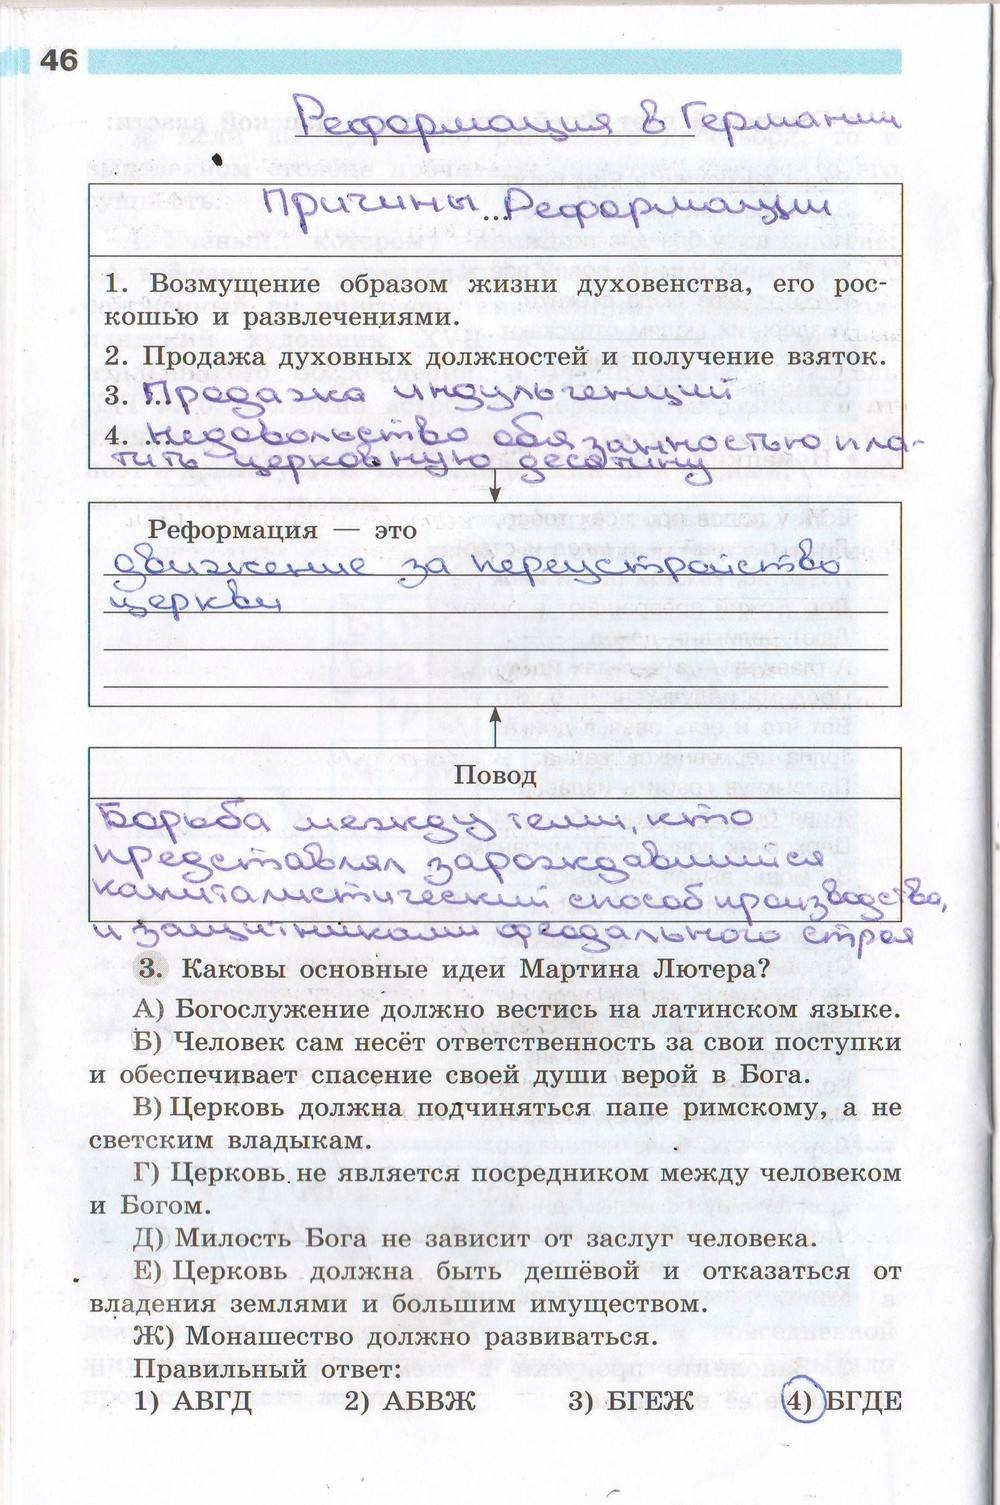 46
Реформация в Германии
Причины ... Реформации
1. Возмущение образом жизни духовенства, его рос-
кошью и развлечениями.
2. Продажа духовных должностей и получение взяток.
3. Продажа индульгенций
4. Недовольство обязанностью пла-
тить церковную десятину
Реформация — это
движение за переустройство
церкви
Повод
Борьба между теми, кто
представлял зарождавшийся
капиталистический способ производства,
и защитниками феодального строя
3. Каковы основные идеи Мартина Лютера?
А) Богослужение должно вестись на латинском языке.
Б) Человек сам несёт ответственность за свои поступки
и обеспечивает спасение своей души верой в Бога.
В) Церковь должна подчиняться папе римскому, а не
светским владыкам.
Г) Церковь не является посредником между человеком
и Богом.
Д) Милость Бога не зависит от заслуг человека.
Е) Церковь должна быть дешёвой и отказаться от
владения землями и большим имуществом.
Ж) Монашество должно развиваться.
Правильный ответ:
1) АВГД 2) АБВЖ 3) БГЕЖ 4) БГДЕ